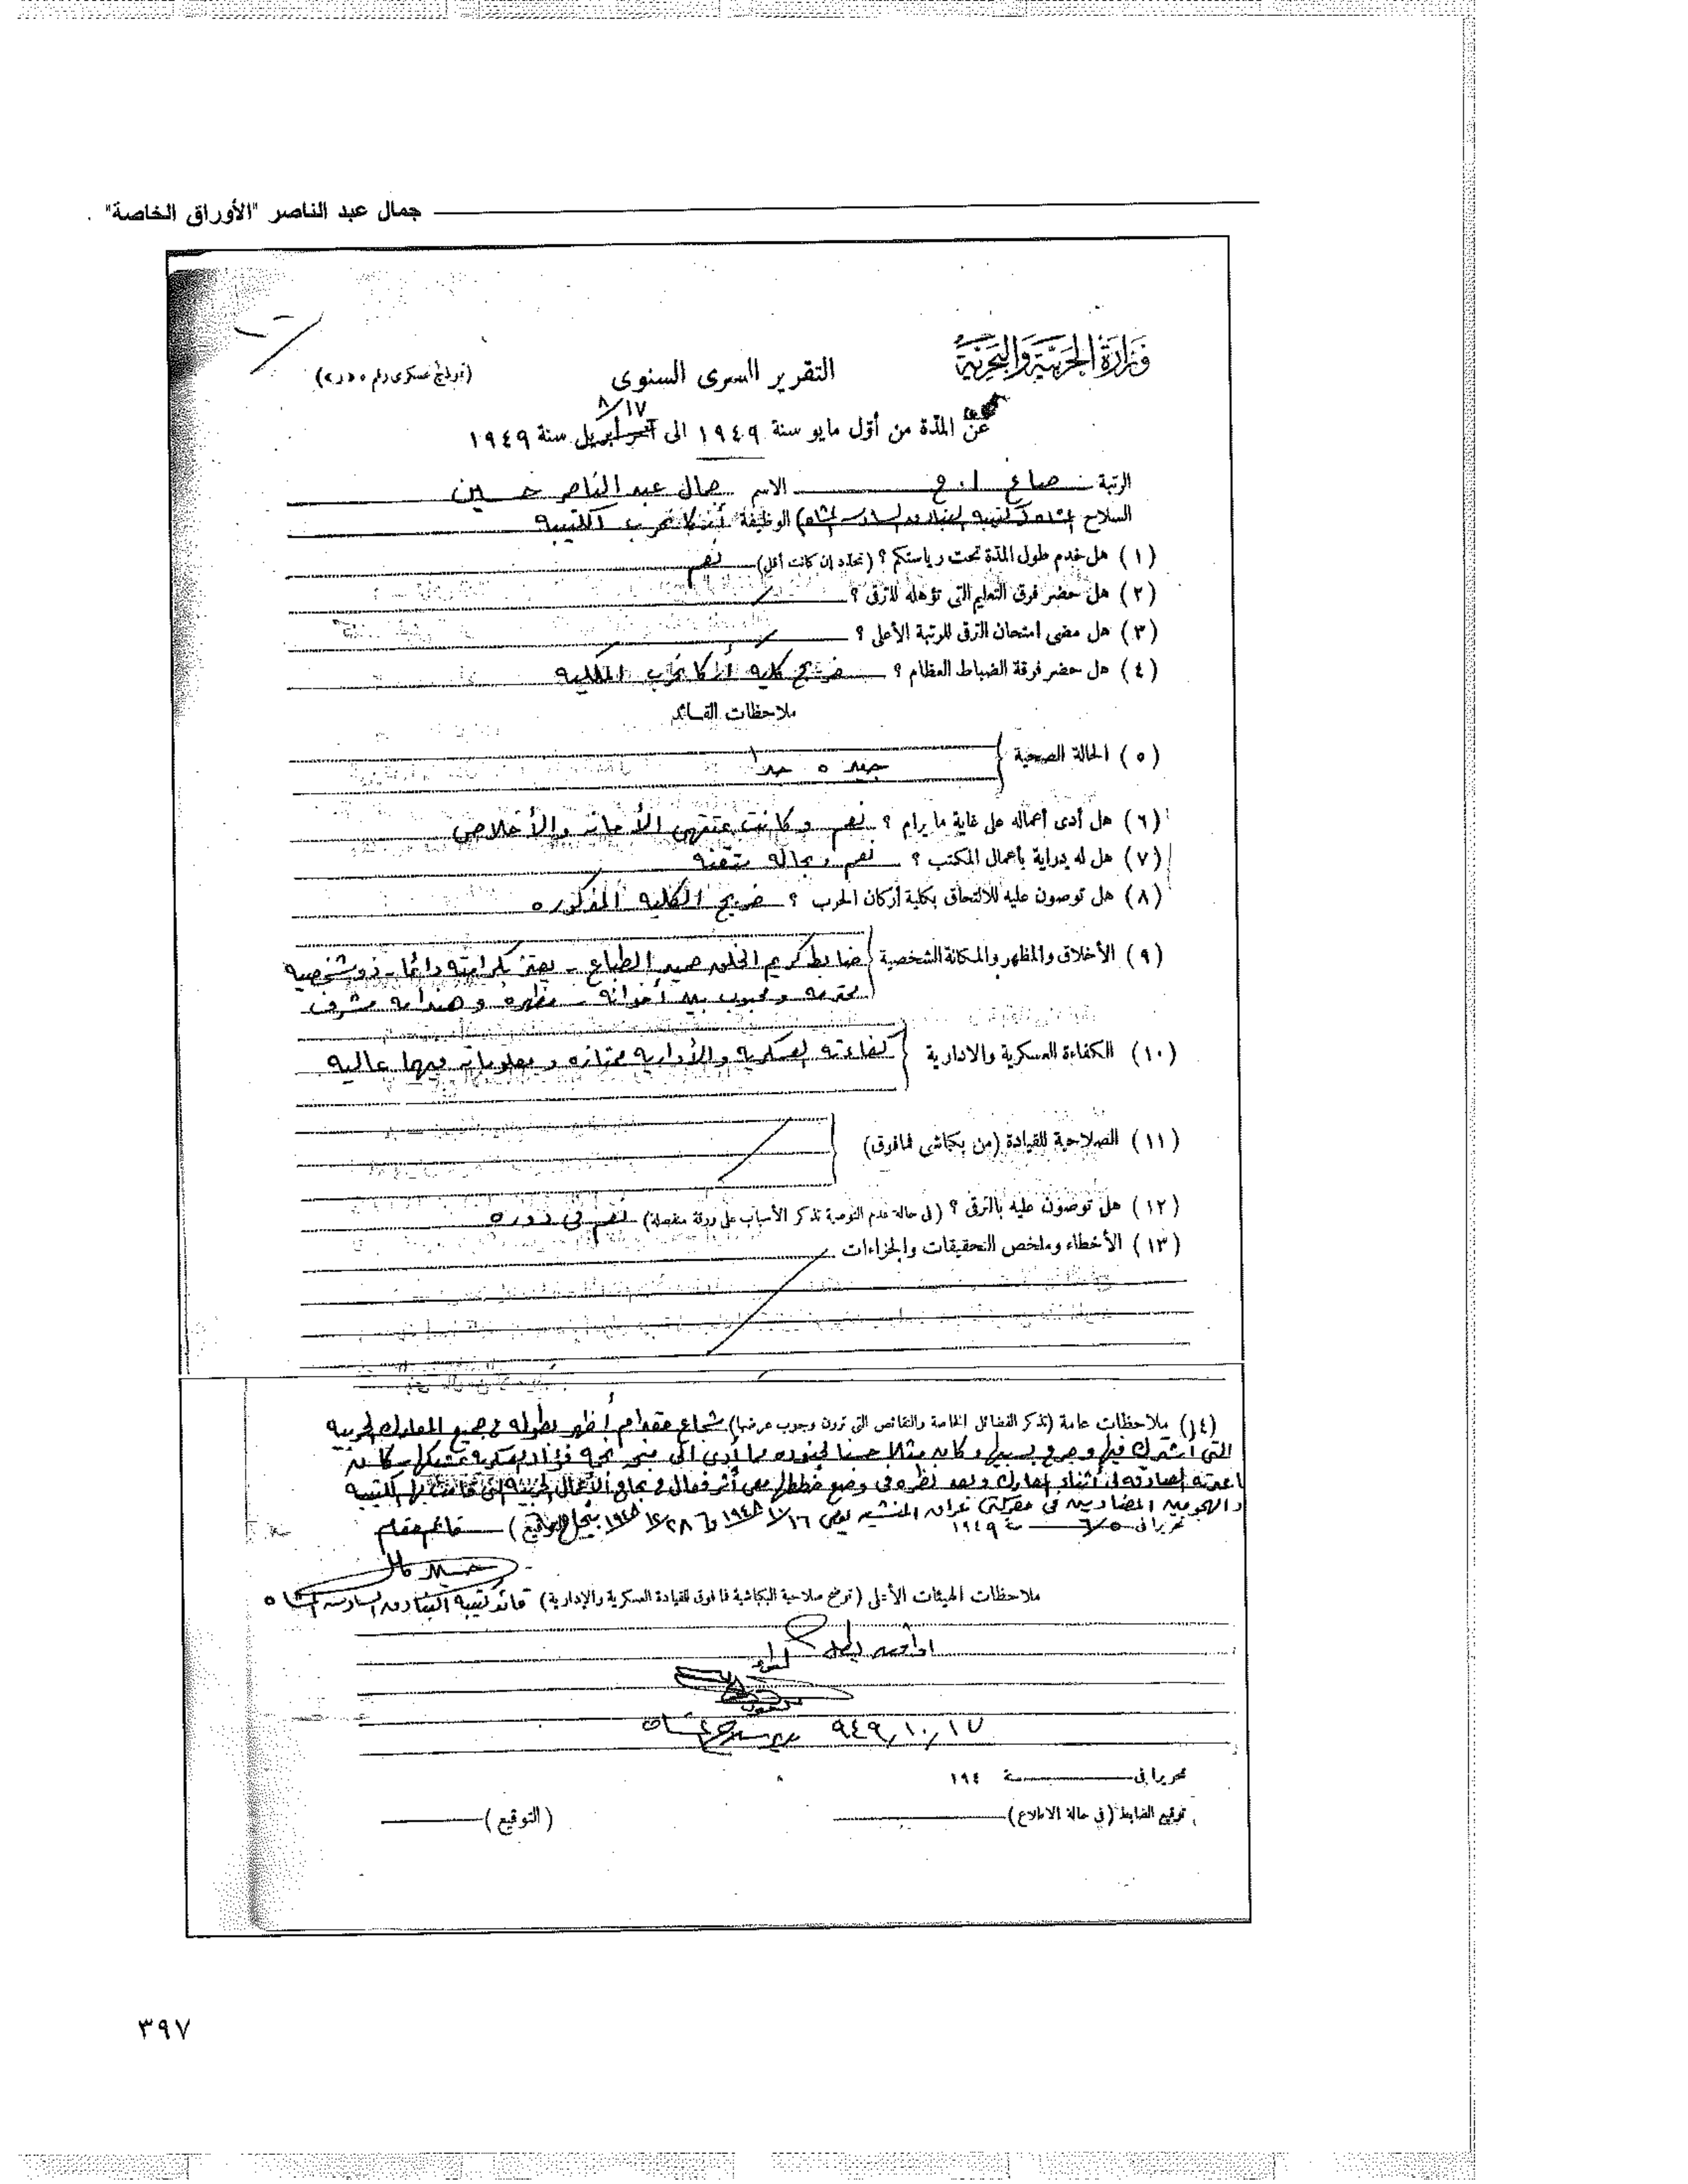 جمال عبد الناصر "الأوراق الخاصة"
وزارة الحربية والبحرية
التقرير السرى السنوى
٨/١٧
عن المدّة من أوّل مايو سنة ١٩٤٩ الى آخر أبريل سنة ١٩٤٩
الرتبة صاغ ا.ح الاسم جمال عبد الناصر حسين
السلاح الوظيفة أركانحرب الكتيبة
(١) هل خدم طول المدّة تحت رياستكم؟ (تحدّد إن كانت أقل) نعم
(٢) هل حضر فرق التعليم التى تؤهله للترقى؟
(٣) هل مضى امتحان الترقى للرتبة الأعلى؟
(٤) هل حضر فرقة الضباط العظام؟ خريج كلية أركانحرب الملكية
ملاحظات القائد
(٥) الحالة الصحية جيدة جدا
(٦) هل أدى أعماله على غاية ما يرام؟ نعم وكانت بمنتهى الأمانة والأخلاص
(٧) هل له دراية بأعمال المكتب؟ نعم وبحالة متقنة
(٨) هل توصون عليه للالتحاق بكلية أركان الحرب؟ خريج الكلية المذكوره
(٩) الأخلاق والمظهر والمكانة الشخصية ضابط كريم الخلق حميد الطباع - يعتز بكرامته دائما - ذو شخصية
محترمة ومحبوب بين أخوانه - مظهره وهندامه مشرف
(١٠) الكفاءة العسكرية والادارية كفاءته العسكرية والأدارية ممتازه ومعلوماته فيها عالية
(١١) الصلاحية للقيادة (من بكباشى فما فوق)
(١٢) هل توصون عليه بالترقى؟ (فى حالة عدم التوصية تذكر الأسباب على ورقة منفصلة) نعم فى دوره
(١٣) الأخطاء وملخص التحقيقات والجزاءات
(١٤) ملاحظات عامة (تذكر الفضائل الخاصة والنقائص التى ترون وجوب عرضها) شجاع مقدام أظهر بطولة فى جميع المعارك الحربية
التى أشترك فيها وجرح بسببها وكان مثلا حسنا لجنوده مما أدى الى منحه نجمة فؤاد العسكرية كان
أثناء المعارك وبعد نظره فى وضع خططها أثر فعال فى نجاح الأعمال الحربية التى قامت بها الكتيبة
والهجومين المضادين فى معركتى عراق المنشيه يومى ١٦/١٠/١٩٤٨ و ٢٨/١٢/١٩٤٨
تحريرا فى ٦/٥ سنة ١٩٤٩ (التوقيع) قائمقام
ملاحظات الهيئات الأعلى (توضح صلاحية البكباشية فما فوق للقيادة العسكرية والإدارية) قائد كتيبة البنادق السادسة المشاه
لواء
٩٤٩/١٠/١٧
تحريرا فى سنة ١٩٤
توقيع الضابط (فى حالة الاطلاع) (التوقيع)
٣٩٧